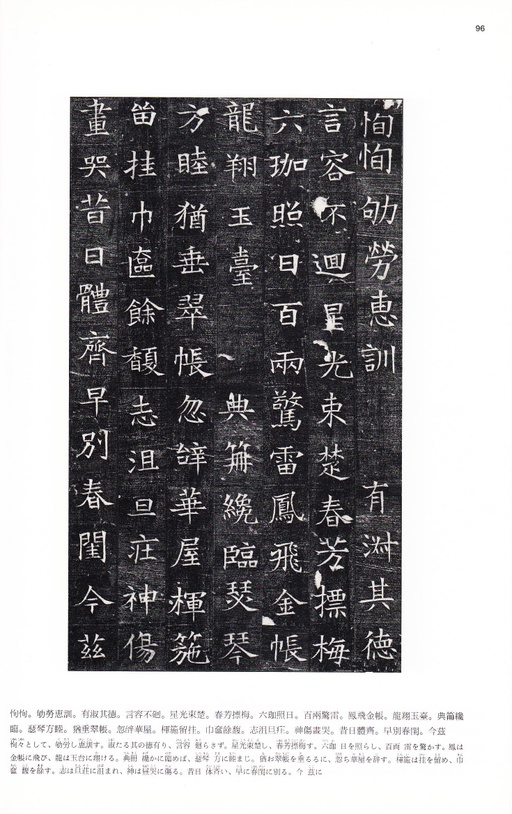 96
恂恂劬勞恵訓有淑其德
言容不迴星光束楚春芳摽梅
六珈照日百兩驚雷鳳飛金帳
龍翔玉臺典冊纔臨瑟琴
方睦猶垂翠帳忽辭華屋楎箷
留挂巾奩餘馥志沮旦疰神傷
晝哭昔日體齊早別春閨今茲
恂恂。劬勞恵訓。有淑其德。言容不迴。星光束楚。春芳摽梅。六珈照日。百兩驚雷。鳳飛金帳。龍翔玉臺。典冊纔
臨。瑟琴方睦。猶垂翠帳。忽辭華屋。楎箷留挂。巾奩餘馥。志沮旦疰。神傷晝哭。昔日體齊。早別春閨。今茲
恂々として、劬勞し恵訓す。淑たる其の德有り、言容 迴らさず。星光束楚し、春芳摽梅す。六珈 日を照らし、百両 雷を驚かす。鳳は
金帳に飛び、龍は玉台に翔ける。典冊 纔かに臨めば、瑟琴 方に睦まじ。猶お翠帳を垂るるに、忽ち華屋を辞す。楎箷は挂を留め、巾
奩 馥を餘す。志は旦疰に沮まれ、神は昼哭に傷る。昔日 体斉い、早に春閨に別る。今 茲に